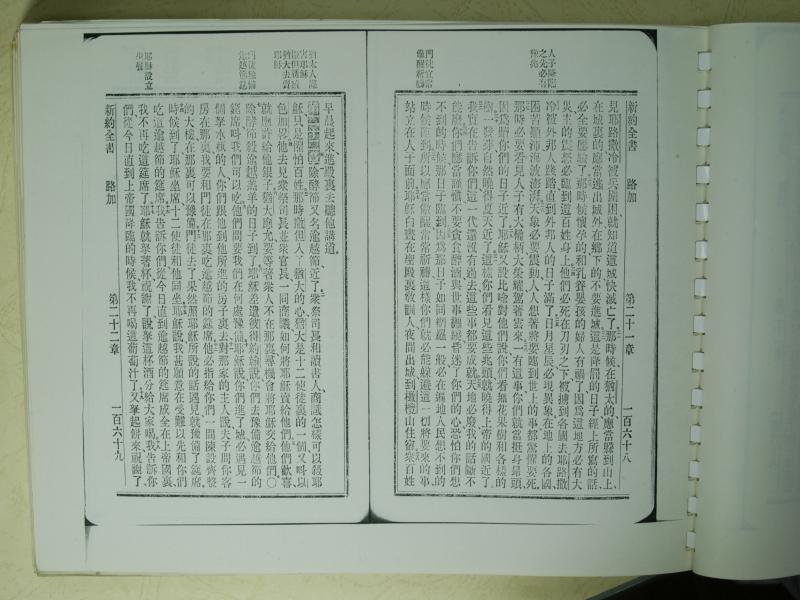 人子降臨
之先必有
預兆
門徒宜常
儆醒祈禱
新約全書 路加 第二十一章 一百六十八
見耶路撒冷被兵圍困就知道這城快滅亡了、那時候在猶太的、應當躲到山上、
在城裏的、應當逃出城外、在鄉下的、不要進城、這是降罰的日子、經上所寫的話、
必全要應驗了、那時候懷孕的和乳養嬰孩的婦人有禍了、因爲這地方必有大
災、主的震怒必臨到這百姓身上、他們必死在刀刃之下、被擄到各國去、耶路撒
冷被外邦人踐踏、直到外邦人的日子滿了、日月星辰必現異象、在地上的各國
困苦顚沛、海波澎湃、天象必要震動、人人想著將要臨到世上的事、都驚懼要死、
那時必要看見人子有大權柄大榮耀駕著雲來、一有這事、你們就當挺身昂頭、
因爲贖你們的日子近了、耶穌又設比喻對他們說、你們看無花果樹和各樣的
樹、一發芽、自然曉得夏天近了、這樣你們看見這些兆頭、就曉得上帝的國近了、
我實在告訴你們、這一代還沒有過去、這些事都要成就、天地必廢、我的話斷不
能廢、你們應當謹慎、不要貪食醉酒、與世事纏繞、昏迷了你們的心、恐怕你們想
不到的時候、那日子臨到、因爲那日子如同網羅一般、必在遍地人民想不到的
時候臨到、所以應當儆醒、常常祈禱、這樣你們就必能躲避這一切將要來的事、
站立在人子面前、耶穌白晝在聖殿裏敎訓人、夜間出城到橄欖山住宿、衆百姓
猶太人
害耶穌
猶大去賣
耶穌
門徒預備
逾越節筵
耶穌設立
聖餐
早晨起來、進殿裏去聽他講道、
除酵節又名逾越節近了、衆祭司長和讀書人、商議怎樣可以殺耶
穌、只是懼怕百姓、那時撒但入了猶大的心、猶大是十二使徒裏的一個、又叫以
色加畧、他去見衆祭司長並衆官長、一同商議如何將耶穌賣給他們、他們歡喜、
就應許給他銀子、猶大應允、要等著衆人不在那裏、尋機會將耶穌交給他們○
除酵節殺逾越羔羊的日子到了、耶穌差遣彼得約翰說、你們去豫備逾越節的
筵席、叫我們可以吃、他們問要我們在何處豫備、耶穌說、你們進了城、必遇見一
個拏水瓶的人、你們跟他到他所進的房子裏去、對那家的主人說、夫子問你客
房在那裏、我要和門徒在那裏吃逾越節的筵席、他必指給你們一間陳設齊整
的大樓、在那裏可以豫備、門徒去了、果然照耶穌所說的話遇見、就豫備了筵席、
時候到了、耶穌坐席、十二使徒和他同坐、耶穌說、我甚願意在受難以先和你們
吃這逾越節的筵席、我告訴你們、從今日直到逾越節的筵席成全在上帝國裏、
我不再吃這筵席了、耶穌就拏著杯祝謝了、說、拏這杯酒分給大家喝、我告訴你
們、從今日直到上帝國降臨的時候、我不再喝這葡萄汁了、又拏起餅來祝謝了
新約全書 路加 第二十二章 一百六十九